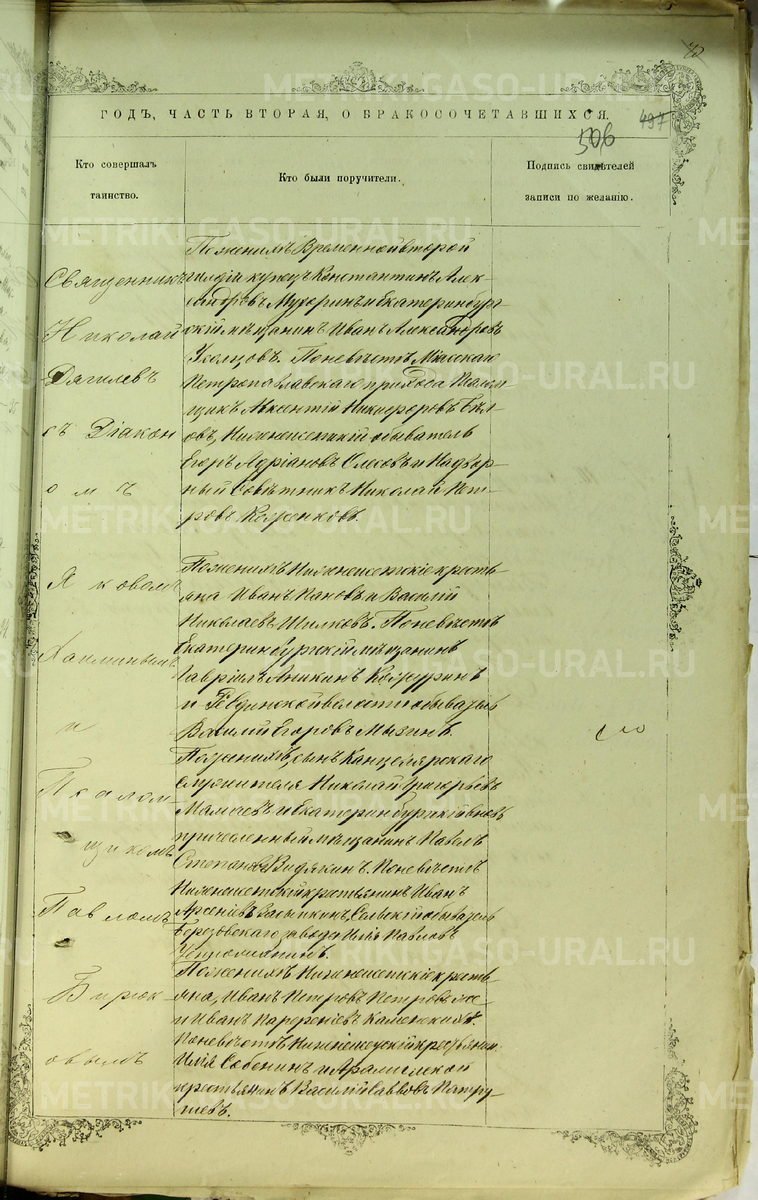 42
METRIKI.GASO-URAL.RU
ГОДЪ, ЧАСТЬ ВТОРАЯ, О БРАКОСОЧЕТАВШИХСЯ.
497
506
Кто совершалъ
таинство.
Кто были поручители.
Подпись свидѣтелей
записи по желанію.
Священникъ
Николай
Дягилевъ
съ Діакон
омъ
Яковомъ
и
Псалом-
щикомъ
Павломъ
Бирюк-
овымъ
Поженихѣ Временной второй
гильдіи купецъ Константинъ Алек-
сандровъ Мухоринъ и Екатеринбург-
скій мѣщанинъ Иванъ Александровъ
Поневѣстѣ Міасскаго
Петропавловскаго прихода Псалом
щикъ Авксентій Никифоровъ Бѣл
овъ, Нижнеисетскій обыватель
Егоръ Адріановъ и Надвор-
ный Совѣтникъ Николай Пет-
ровъ
Поженихѣ Нижнеисетскіе кресть-
яна Иванъ Пановъ и Василій
Николаевъ Шилковъ. Поневѣстѣ
Екатеринбургскій мѣщанинъ
Гавріилъ Аникинъ
и Рѣвдинской волости обыватель
Василій Егоровъ Мызинъ.
Поженихѣ, сынъ Канцелярскаго
служителя Николай Григорьевъ
Мамаевъ и Екатеринбургскій вновь
причисленный мѣщанинъ Павелъ
Степановъ Видякинъ. Поневѣстѣ
Нижнеисетскій крестьянинъ Иванъ
Арсеніевъ Сельскій обыватель
Березовскаго завода Илія Павловъ
Поженихѣ Нижнеисетскіе кресть-
яна, Иванъ Петровъ
и Иванъ Парфеніевъ Каменскихъ.
Поневѣстѣ Нижнеисетскій крестьянинъ
Илія Собенинъ и Арамильской
крестьянинъ Василій Саввовъ Патру
шевъ.